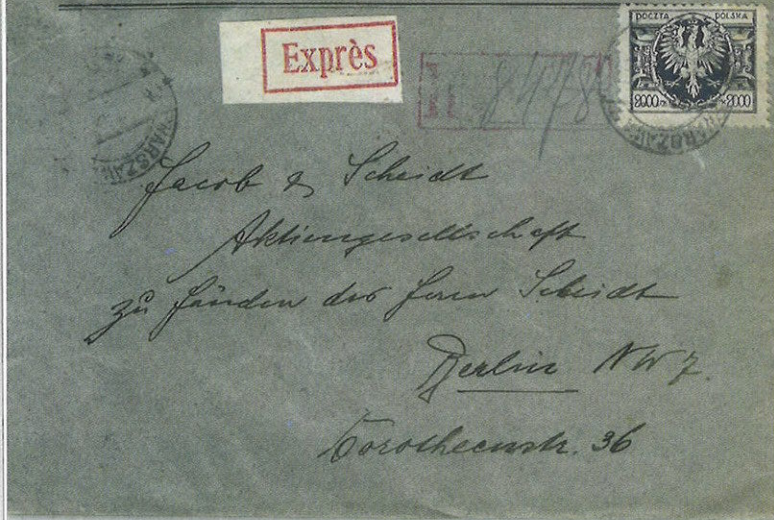 Exprès
POCZTA POLSKA
2000 2000
8448
WARSZAWA
Jacob & Scheidt
Aktiengesellschaft
zu Händen des Herrn Scheidt
Berlin NW 7.
Dorotheenstr. 36